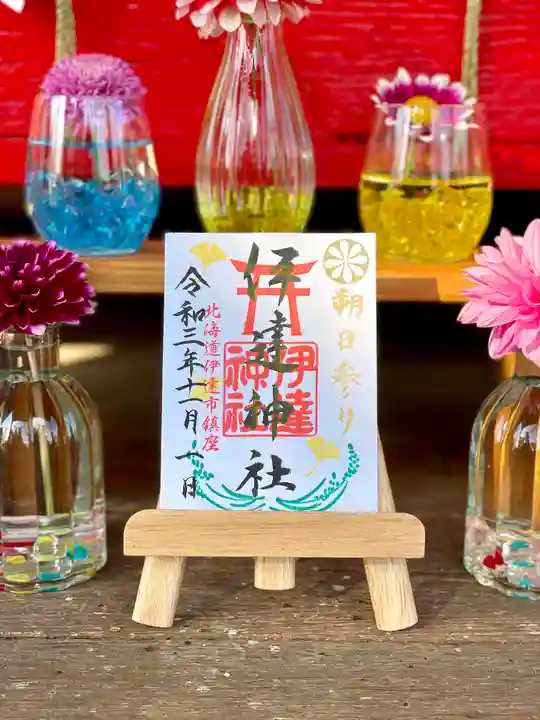 朔日参り
伊達神社
伊達神社
北海道伊達市鎮座
令和三年十一月一日